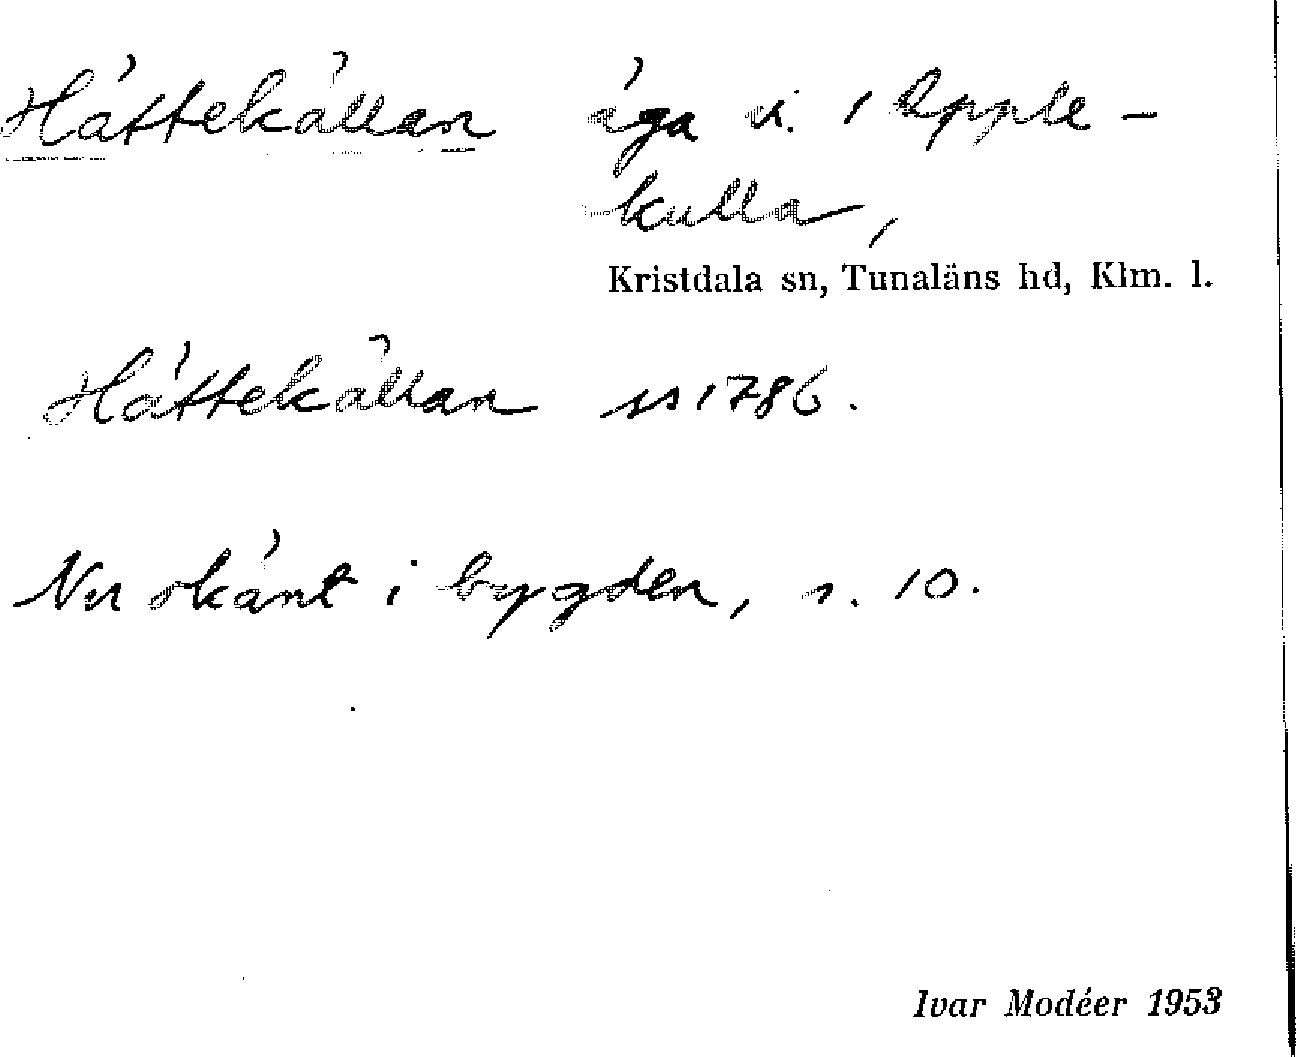 Hättekällan äga u. 1 Apple-
kulla,
Kristdala sn, Tunaläns hd, Klm. l.
Hättekällan ss 1786.
Nu okänt i bygden, s. 10.
Ivar Modéer 1953